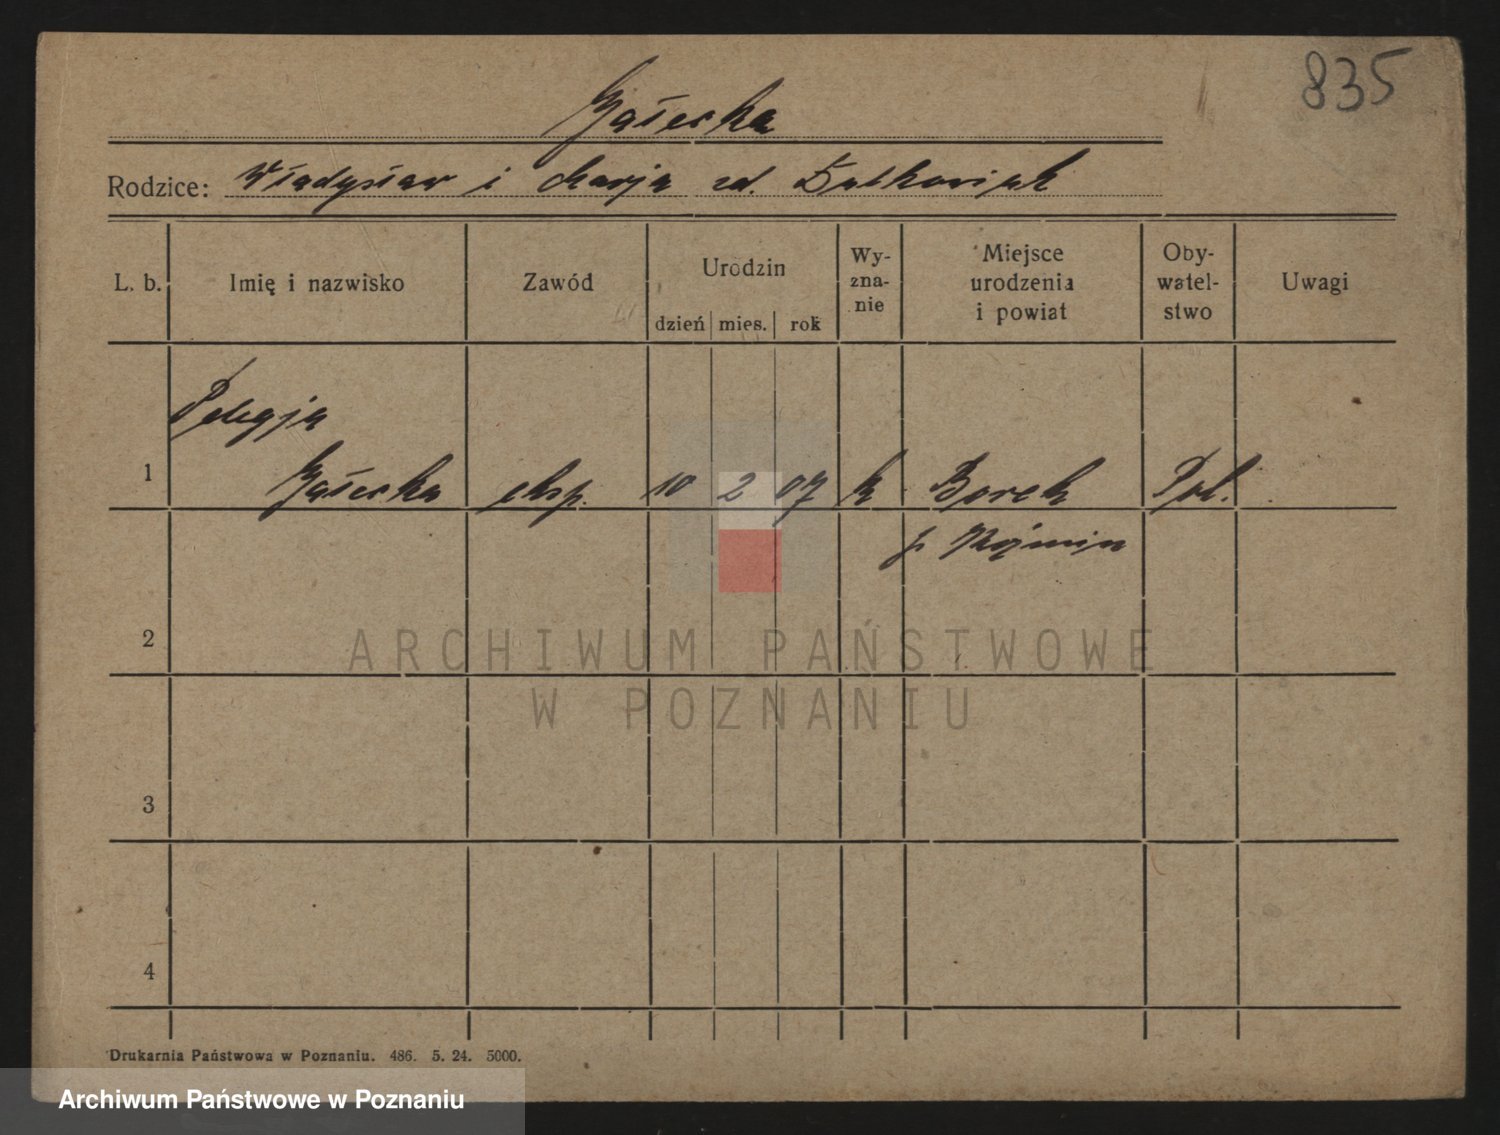 835
Gąsecka
Rodzice: Władysław i Marja zd.
L. b. Imię i nazwisko Zawód Urodzin dzień mies. rok Wy-zna-nie Miejsce urodzenia i powiat Oby-watel-stwo Uwagi
Pelagja
1 Gąsecka eksp. 10 2 07 k Borek Pol.
p. Koźmin
2
ARCHIWUM PAŃSTWOWE
W POZNANIU
3
4
Drukarnia Państwowa w Poznaniu. 486. 5. 24. 5000.
Archiwum Państwowe w Poznaniu